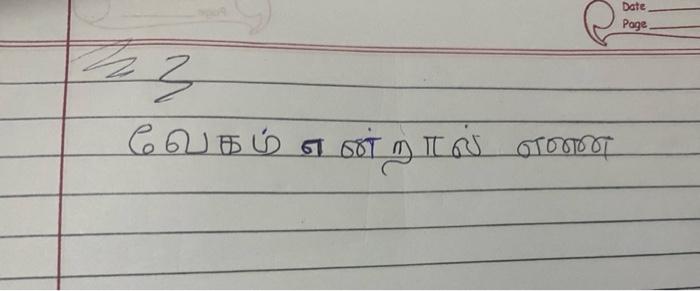 Date
Page
வேகம் என்றால் என்ன